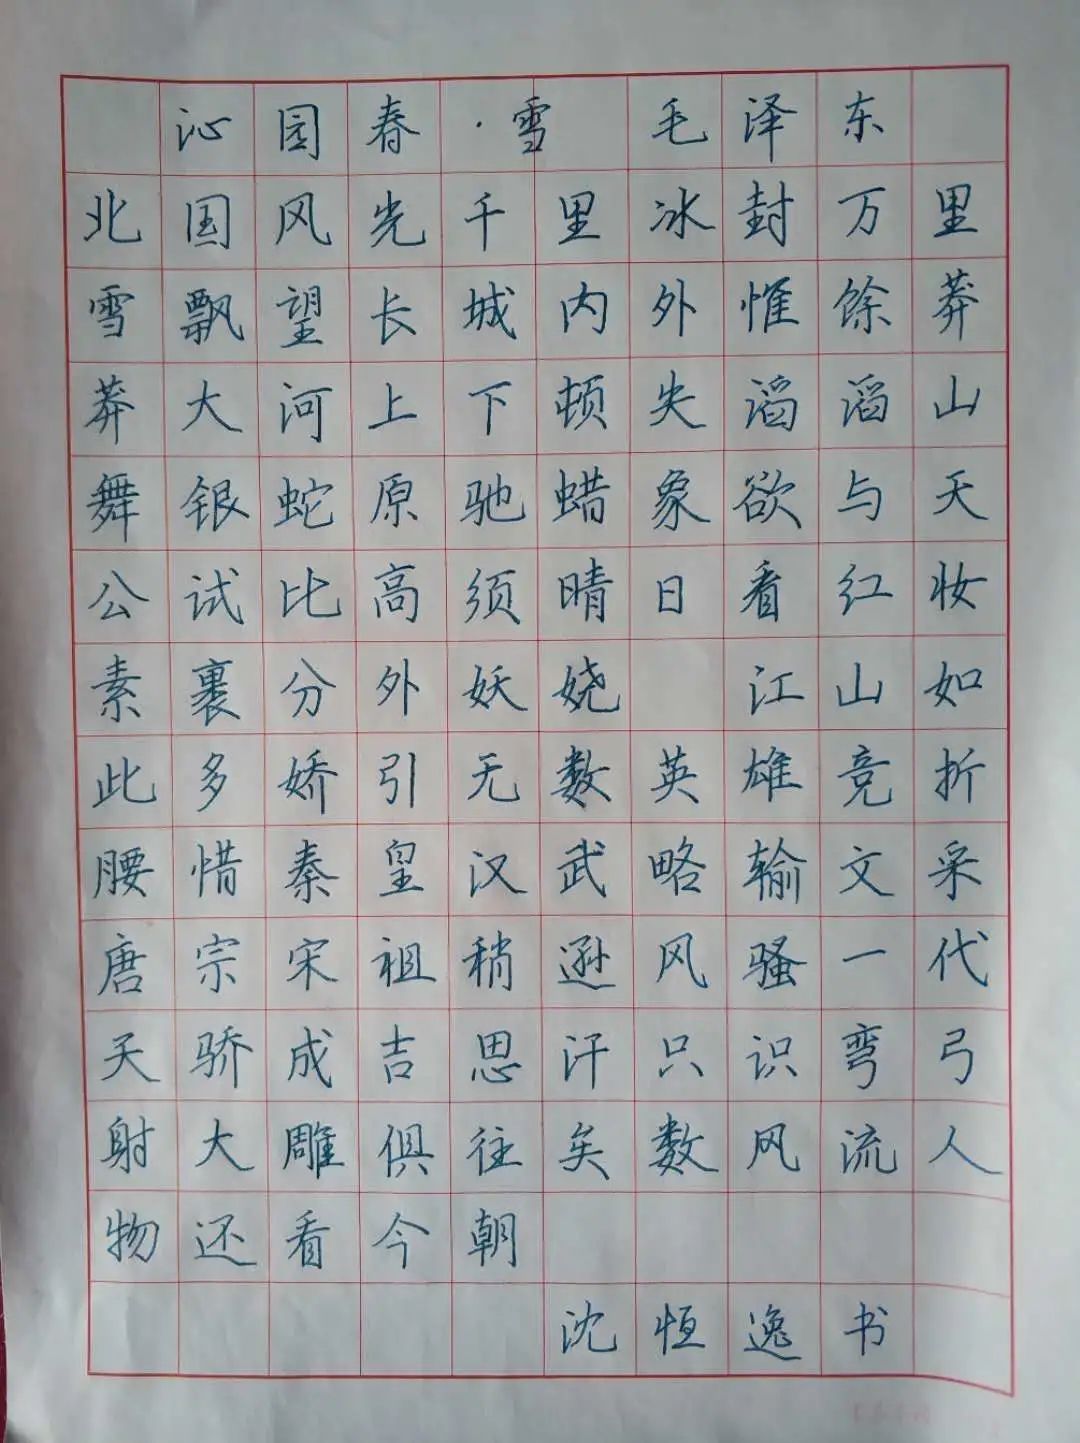 沁园春·雪 毛泽东
北国风光千里冰封万里
雪飘望长城内外惟馀莽
莽大河上下顿失滔滔山
舞银蛇原驰蜡象欲与天
公试比高须晴日看红妆
素裹分外妖娆 江山如
此多娇引无数英雄竞折
腰惜秦皇汉武略输文采
唐宗宋祖稍逊风骚一代
天骄成吉思汗只识弯弓
射大雕俱往矣数风流人
物还看今朝
沈恒逸书